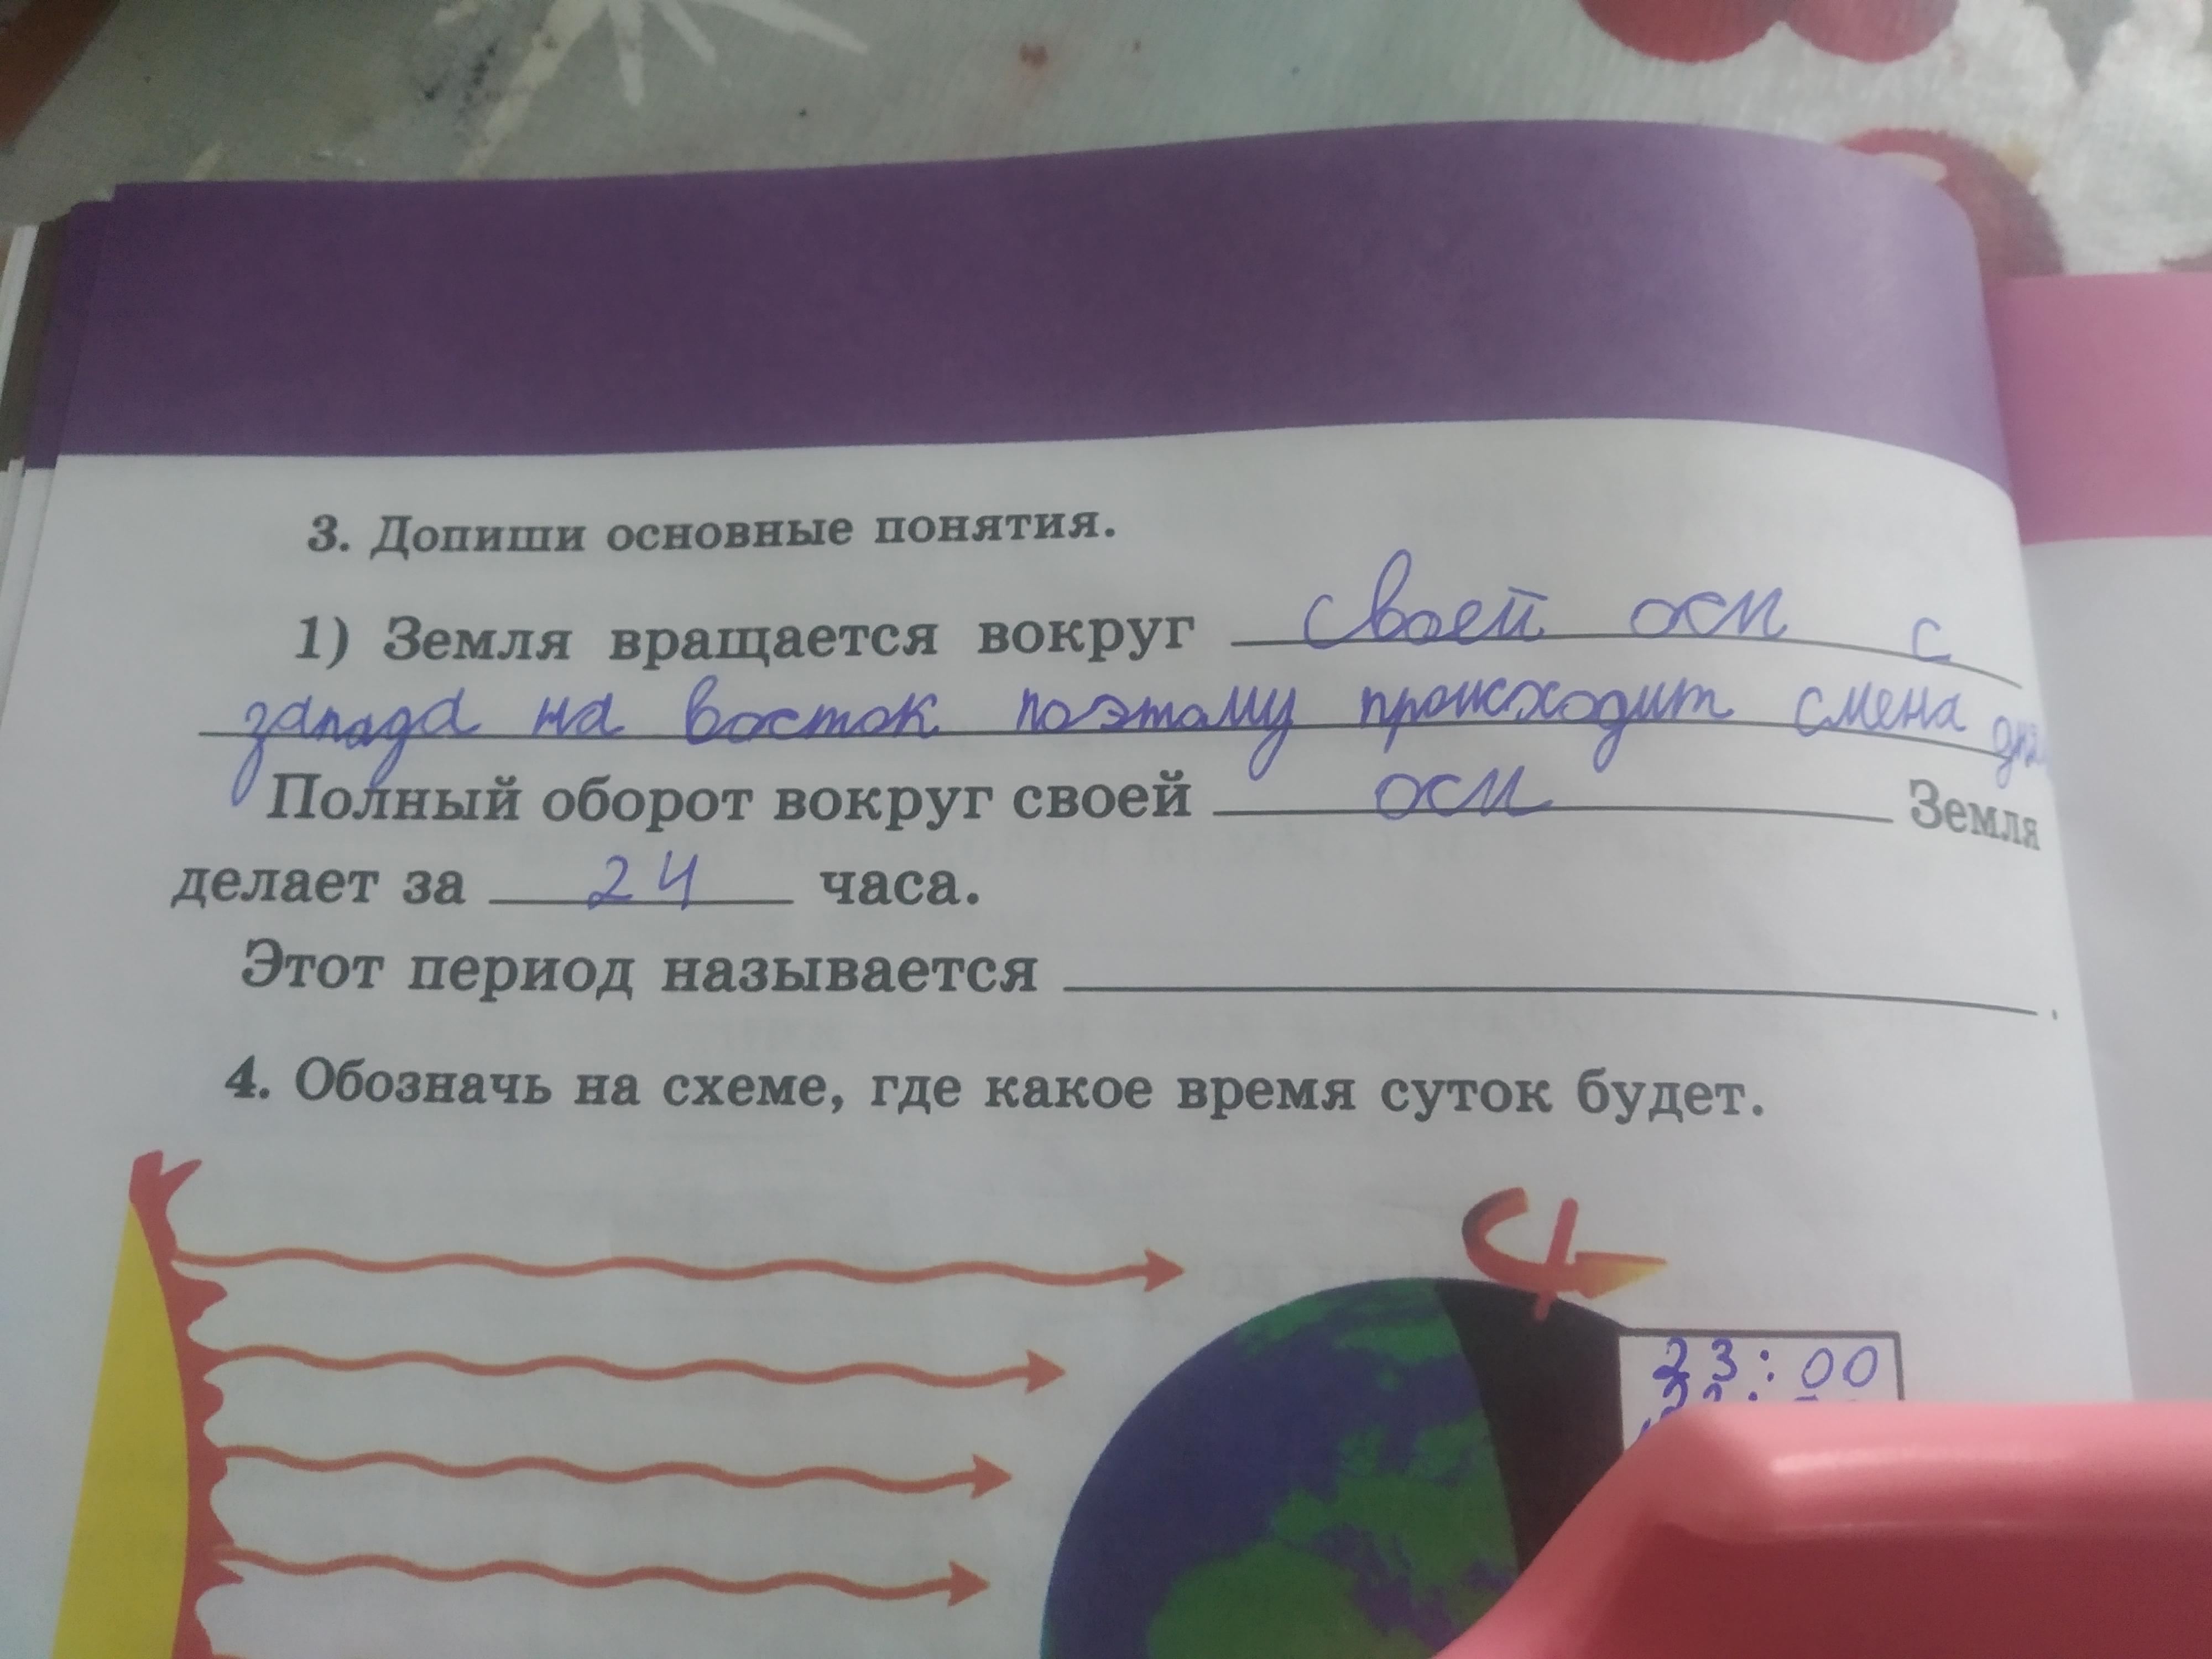 3. Допиши основные понятия.
1) Земля вращается вокруг своей оси с
запада на восток поэтому происходит смена дня
Полный оборот вокруг своей оси Земля
делает за 24 часа.
Этот период называется .
4. Обозначь на схеме, где какое время суток будет.
23:00